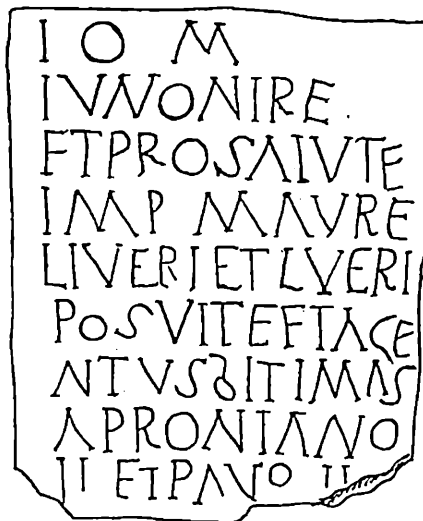 I O M
IVNONIRE
FTPROSAIVTE
IMP MAVRE
LIVERIETLVERI
POSVITEFTACE
NTVSBITIMAS
APRONIANO
II ETPAVO II